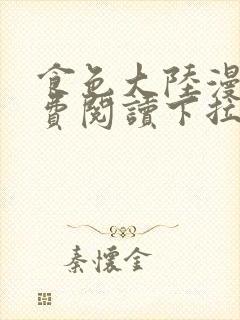 食色大陸漫
費閱讀下拉
秦懷金